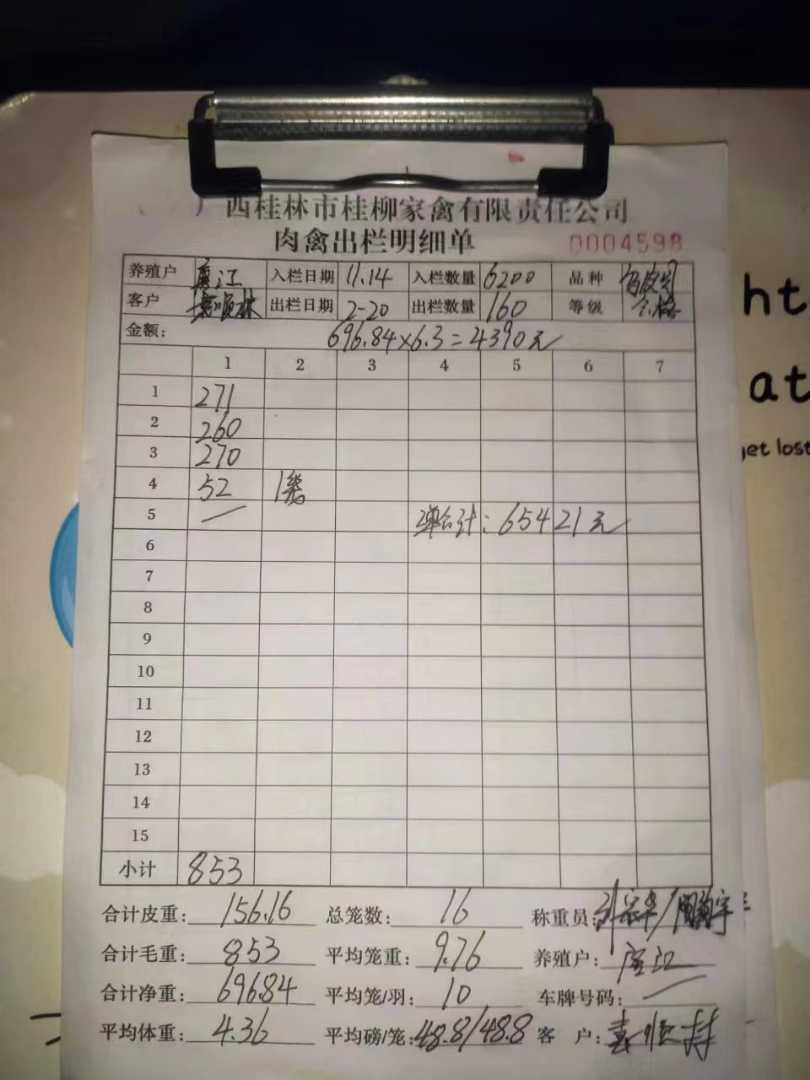 广西桂林市桂柳家禽有限责任公司
肉禽出栏明细单 0004598
养殖户 唐江 入栏日期 11.14 入栏数量 6200 品种
客户 出栏日期 2-20 出栏数量 160 等级
金额: 696.84×6.3=4390元
1 2 3 4 5 6 7
1 271
2 260
3 270
4 52 1
5 合计:65421元
6
7
8
9
10
11
12
13
14
15
小计 853
合计皮重: 156.16 总笼数: 16 称重员:
合计毛重: 853 平均笼重: 9.76 养殖户: 唐江
合计净重: 696.84 平均笼/羽: 10 车牌号码:
平均体重: 4.36 平均磅/笼: 48.8/48.8 客 户:
ht
at
get lost